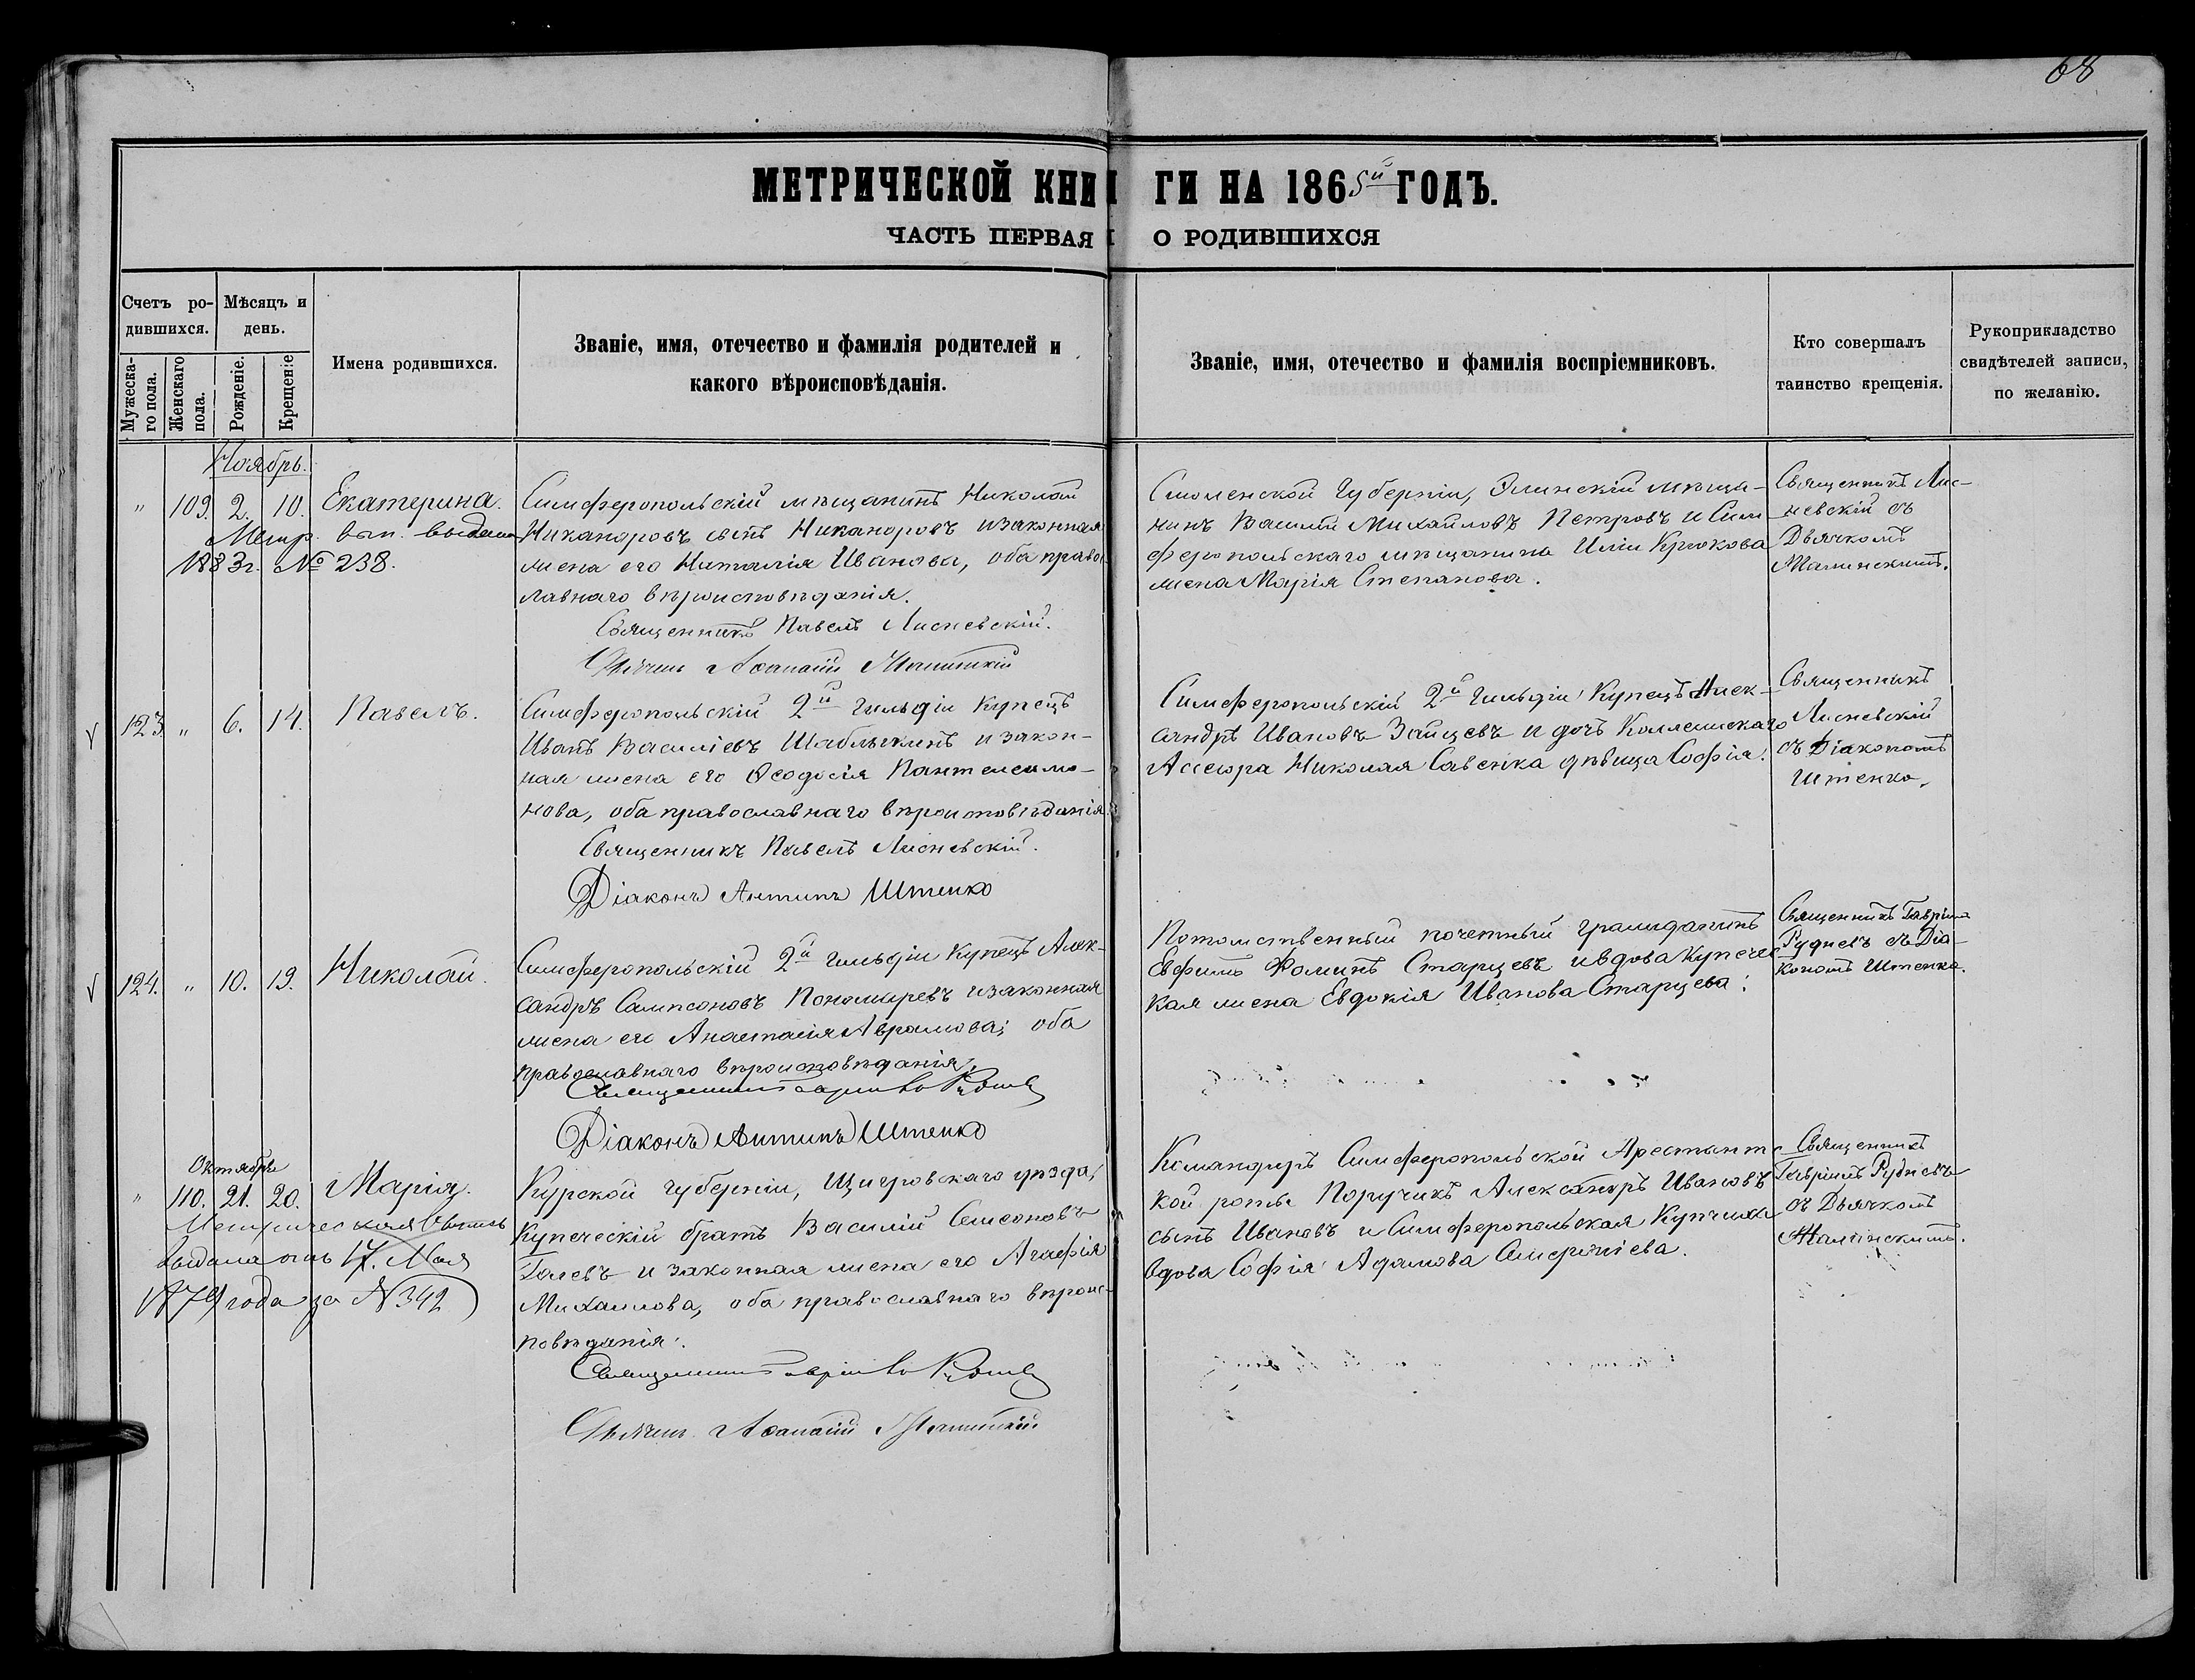 68
МЕТРИЧЕСКОЙ КНИГИ НА 1865й ГОДЪ.
ЧАСТЬ ПЕРВАЯ О РОДИВШИХСЯ
Счетъ ро-
дившихся.
Мужеска-
го пола.
Женскаго
пола.
Мѣсяцъ и
день.
Рожденіе.
Крещеніе
Имена родившихся.
Званіе, имя, отечество и фамилія родителей и
какого вѣроисповѣданія.
Званіе, имя, отечество и фамилія воспріемниковъ.
Кто совершалъ
таинство крещенія.
Рукоприкладство
свидѣтелей записи,
по желанію.
Ноябрь.
" 109. 2. 10. Екатерина.
Метр. вып. выдана
1883г. № 238.
Симферопольскій мѣщанинъ Николай
Никаноровъ сынъ Никаноровъ и законная
жена его Наталія Иванова, оба правос
лавнаго вѣроисповѣданія.
Священникъ Павелъ Лисневскій.
Дьячекъ Афанасій
Смоленской Губерніи, Элинскій мѣща-
нинъ Василій Михайловъ Петровъ и Сим
феропольскаго мѣщанина Иліи Крюкова
жена Марія Степанова.
Священникъ Лис-
невскій съ
Дьячкомъ
123 " 6. 14. Павелъ.
Симферопольскій 2й гильдіи Купецъ
Иванъ Василіевъ Шаблыкинъ и закон-
ная жена его Ѳеодосія Пантелеимо-
нова, оба православнаго вѣроисповѣданія.
Священникъ Павелъ Лисневскій.
Діаконъ Антипъ Штенко
Симферопольскій 2й гильдіи Купецъ Алек-
сандръ Ивановъ Зайцевъ и дочь Коллежскаго
Ассесора Николая Савенка дѣвица Софія.
Священникъ
Лисневскій
съ Діакономъ
Штенко.
124. " 10. 19. Николай.
Симферопольскій 2й гильдіи Купецъ Алек-
сандръ Сампсоновъ Пономаревъ и законная
жена его Анастасія Аврамова; оба
православнаго вѣроисповѣданія.
Священникъ Гавріилъ Рудневъ
Діаконъ Антипъ Штенко
Потомственный почетный гражданинъ
Евфимъ Фоминъ Старцевъ и вдова Купечес
кая жена Евдокія Иванова Старцева.
Священникъ Гавріилъ
Рудневъ съ Діа-
кономъ Штенко.
Октября
" 110. 21. 20. Марія.
Метрическая Выпись
выдана отъ 17. Мая
1879 года за № 342
Курской губерніи, Щигровскаго уѣзда,
Купеческій братъ Василій Самсоновъ
и законная жена его Агафія
Михаилова, оба православнаго вѣроис-
повѣданія.
Священникъ Гавріилъ Рудневъ
Дьячекъ Афанасій
Командиръ Симферопольской Арестантс
кой роты Поручикъ Александръ Ивановъ
сынъ Ивановъ и Симферопольская Купчиха
вдова Софія Адамова
Священникъ
Гавріилъ Рудневъ
съ Дьячкомъ